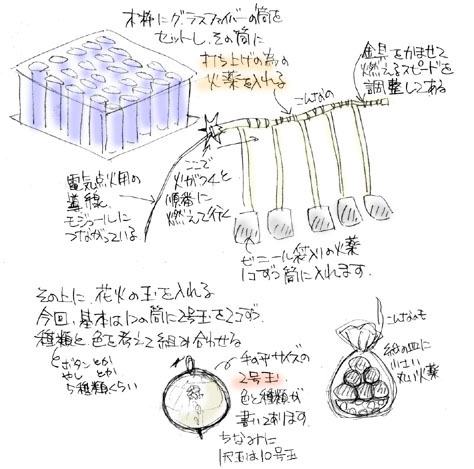 木枠にグラスファイバーの筒を
セットし、その筒に
打ち上げの為の
火薬を入れる
こんなの
金具をかませて
燃えるスピードを
調整してある
電気点火用の
導線
モジュールに
つながっている
ここで
火がつくと
順番に
燃えて行く
ビニール袋入りの火薬
1コずつ筒に入れます。
その上に、花火の玉を入れる
今回、基本は1つの筒に2号玉を2コずつ、
種類と色を考えて組み合わせる
ボタンとか
やしとか
5種類くらい
手の平サイズの
2号玉
色と種類が
書いてあります。
ちなみに
1尺玉は10号玉
こんなのも
紙の皿に
小さい
丸い火薬